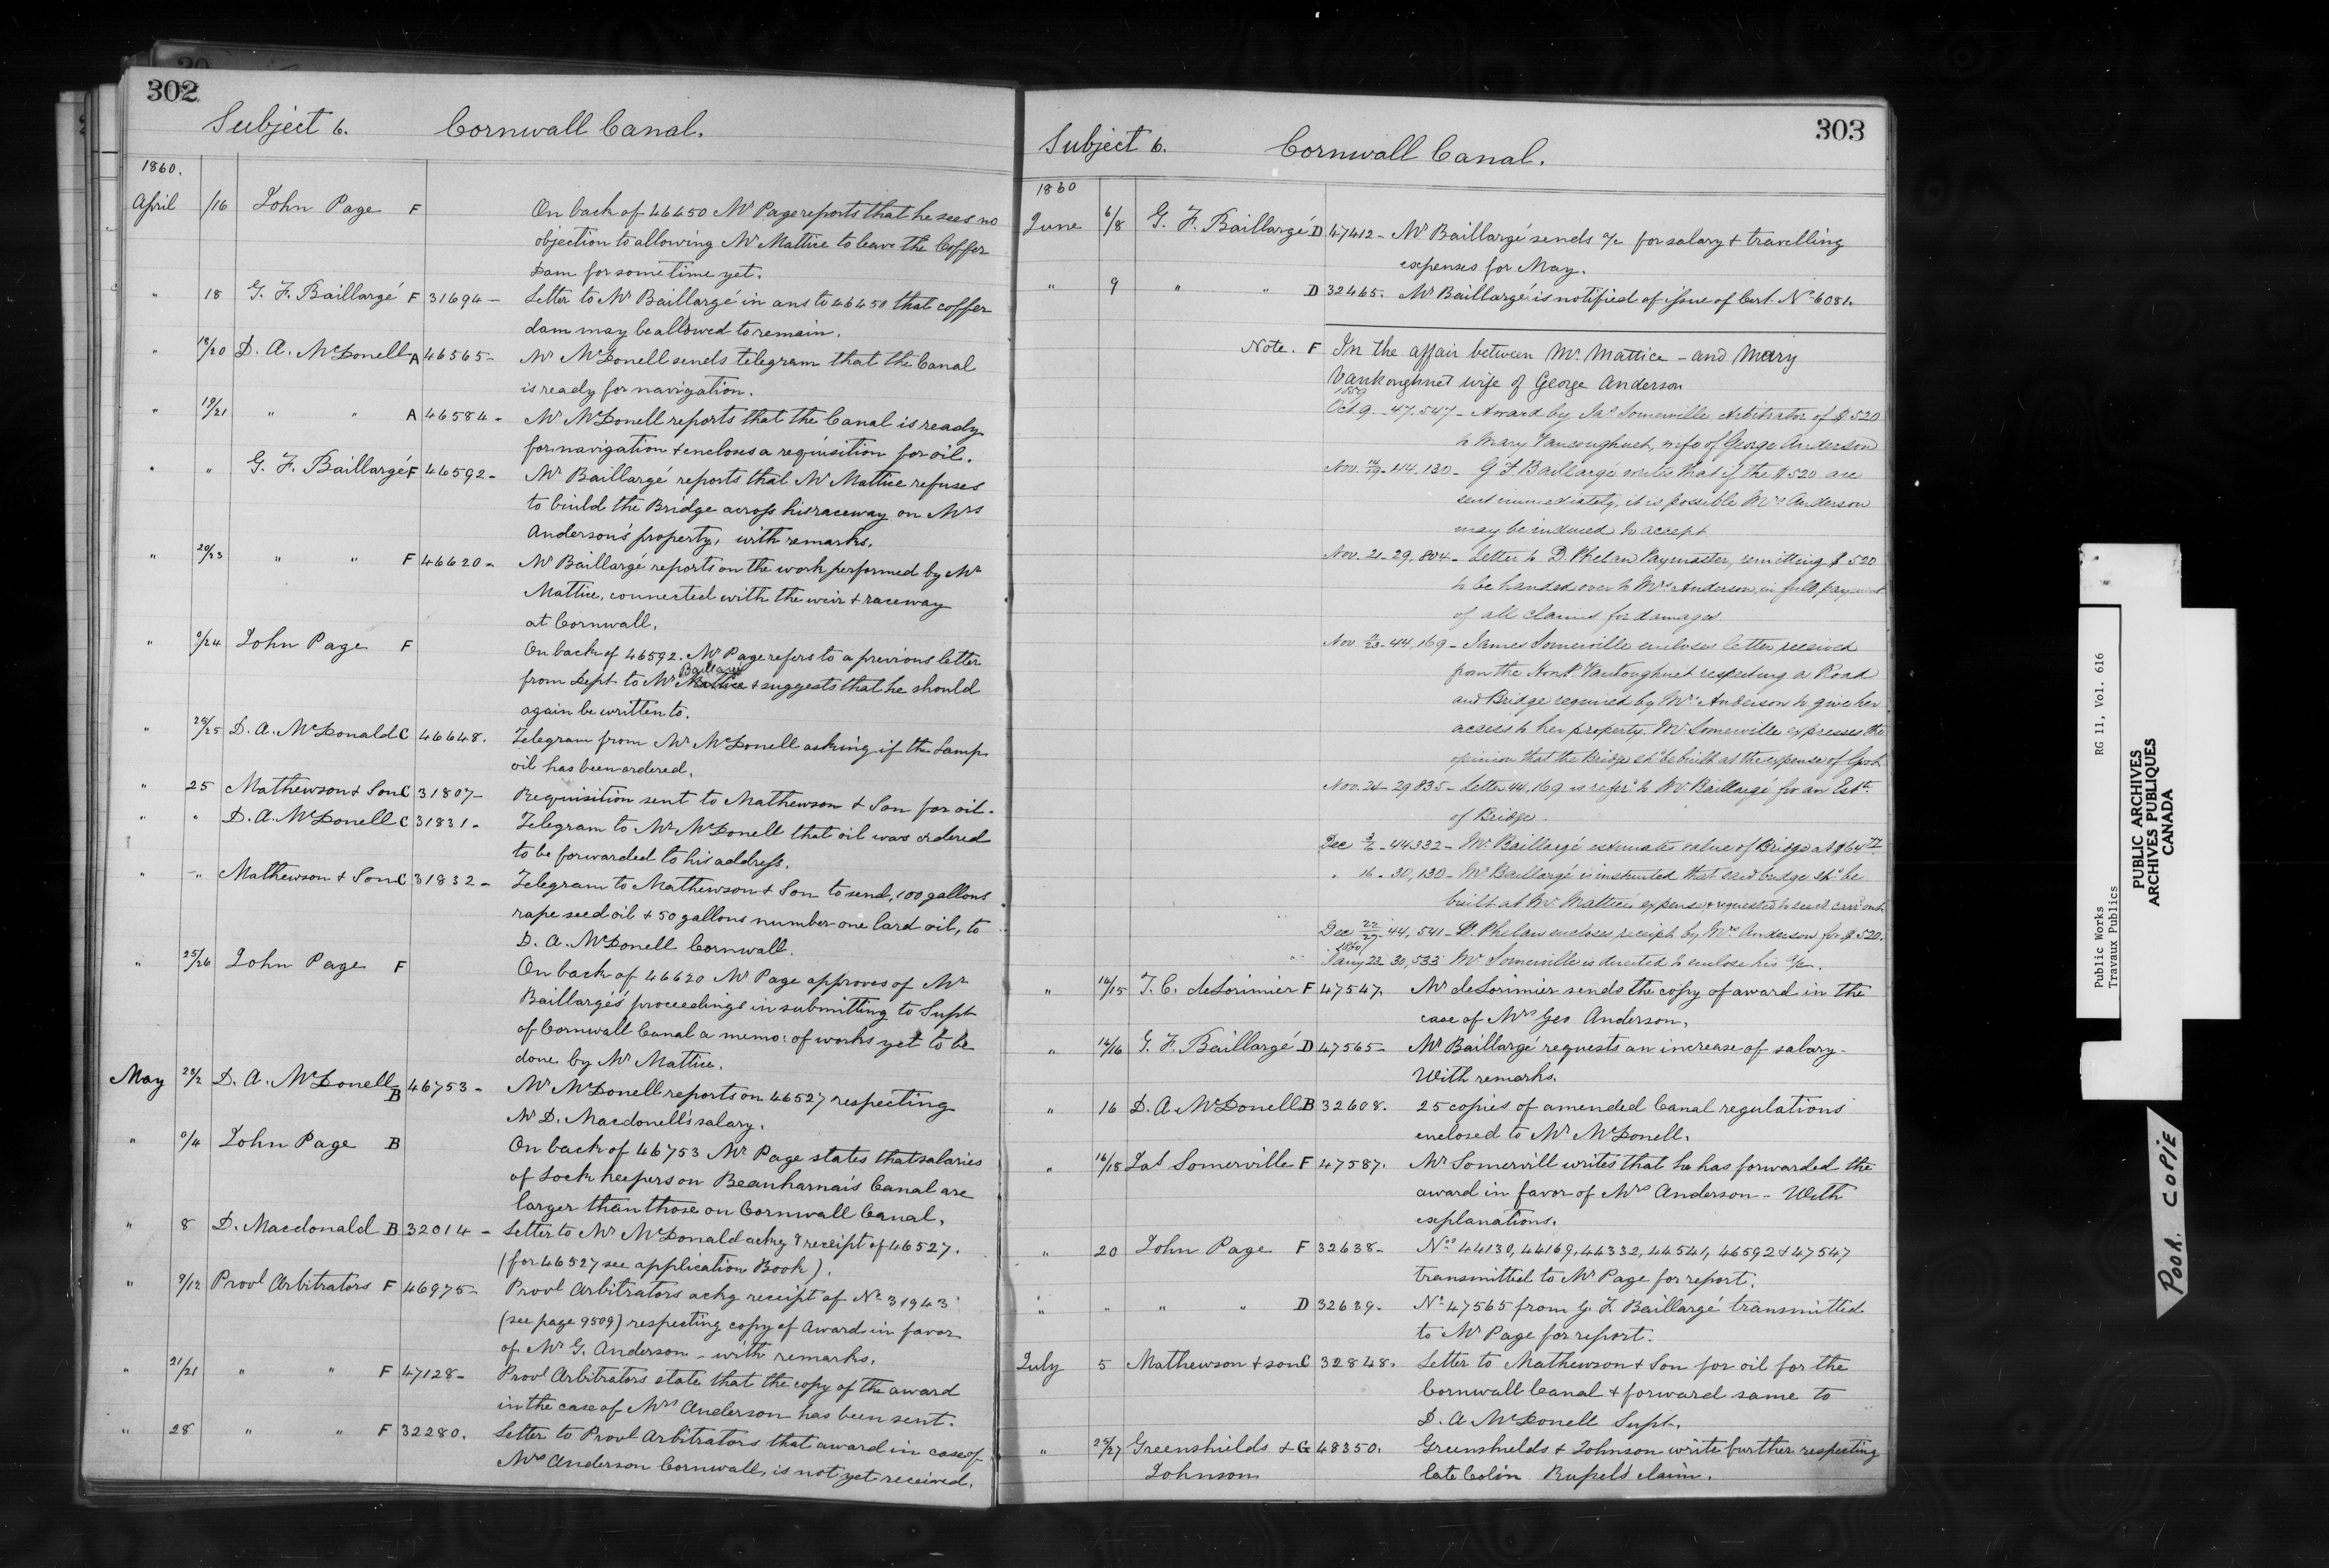 302
Subject 6. Cornwall Canal.
1860.
April /16 John Page F On back of 46450 Mr Page reports that he sees no
objection to allowing Mr Mattice to leave the Coffer
Dam for some time yet.
" 18 G. F. Baillargé F 31694 - Letter to Mr Baillargé in ans to 46450 that coffer
dam may be allowed to remain.
" 18/20 D. A. McDonell A 46565 - Mr McDonell sends telegram that the Canal
is ready for navigation.
" 19/21 " " A 46584 - Mr McDonell reports that the Canal is ready
for navigation & encloses a requisition for oil.
" " G. F. Baillargé F 46592 - Mr Baillargé reports that Mr Mattice refuses
to build the Bridge across his raceway on Mrs
Anderson's property, with remarks.
" 20/23 " " F 46620 - Mr Baillargé reports on the work performed by Mr
Mattice, connected with the weir & raceway
at Cornwall.
" 0/24 John Page F On back of 46592. Mr Page refers to a previous letter
Baillargé
from Dept to Mr Mattice & suggests that he should
again be written to.
" 25/25 D. A. McDonald C 46648. Telegram from Mr McDonell asking if the Lamp
oil has been ordered.
" 25 Mathewson & Son C 31807 - Requisition sent to Mathewson & Son for oil.
" " D. A. McDonell C 31831 - Telegram to Mr McDonell that oil was ordered
to be forwarded to his address.
" " Mathewson & Son C 31832 - Telegram to Mathewson & Son to send, 100 gallons
rape seed oil & 50 gallons number one lard oil, to
D. A. McDonell Cornwall.
" 25/26 John Page F On back of 46620 Mr Page approves of Mr
Baillargé's proceedings in submitting to Supt
of Cornwall Canal a memo: of works yet to be
done by Mr Mattice.
May 28/2 D. A. McDonell B 46753 - Mr McDonell reports on 46527 respecting
Mr D. Macdonell's salary.
" 0/4 John Page B On back of 46753 Mr Page states that salaries
of Lock keepers on Beauharnais Canal are
larger than those on Cornwall Canal.
" 8 D. Macdonald B 32014 - Letter to Mr McDonald ackg receipt of 46527.
(for 46527 see application Book).
" 9/12 Provl Arbitrators F 46975 - Provl Arbitrators ackg receipt of No 31943
(see page 9509) respecting copy of Award in favor
of Mr G. Anderson - with remarks.
" 21/21 " " F 47128 - Provl Arbitrators state that the copy of the award
in the case of Mrs Anderson has been sent.
" 28 " " F 32280. Letter to Provl Arbitrators that award in case of
Mrs Anderson Cornwall, is not yet received.
303
Subject 6. Cornwall Canal.
1860
June 6/8 G. F. Baillargé D 47412 - Mr Baillargé sends a/c for salary & travelling
expenses for May.
" 9 " " D 32465. Mr Baillargé is notified of issue of Cert. No 6081.
Note. F In the affair between Mr. Mattice - and Mary
Vankoughnet wife of George Anderson
1859
Oct. 9. 47.547 - Award by Jas Somerville, Arbitrator of $520
to Mary Vancoughnet, wife of George Anderson
Nov. 14/19 - 44,130 - G F Baillargé writes that if the $520 are
sent immediately, it is possible Mrs Anderson
may be induced to accept
Nov. 21 - 29.804 - Letter to D. Phelan Paymaster, remitting $520
to be handed over to Mrs Anderson, in full payment
of all claims for damages
Nov 23 - 44,169 - James Somerville encloses letter received
from the Hon P. Vankoughnet respecting a Road
and Bridge required by Mrs Anderson to give her
access to her property. Mr Somerville expresses the
opinion that the Bridge shd be built at the expense of Govt
Nov. 24 - 29835 - Letter 44,169 is referd to Mr Baillargé for an Este
of Bridge.
Dec 3/6 - 44332 - Mr Baillargé estimates value of Bridge at $64
" 16 - 30,130 - Mr Baillargé is instructed that said bridge shd be
built at Mr Mattice's expense & requested to see it carrd out
Dec 22/27 - 44,541 - D. Phelan encloses receipt by Mrs Anderson for $520.
1860
Jany 23 - 30,533 Mr Somerville is directed to enclose his a/c.
" 14/15 T. C. deLorimier F 47547. Mr deLorimier sends the copy of award in the
case of Mrs Geo Anderson.
" 14/16 G. F. Baillargé D 47565 - Mr Baillargé requests an increase of salary -
With remarks.
" 16 D. A. McDonell B 32608. 25 copies of amended Canal regulations
enclosed to Mr McDonell.
" 16/18 Jas Somerville F 47587. Mr Somervill writes that he has forwarded the
award in favor of Mrs Anderson - With
explanations.
" 20 John Page F 32638 - Nos 44130, 44169, 44332, 44541, 46592 & 47547
transmitted to Mr Page for report.
" " " " D 32639. No 47565 from G. F. Baillargé transmitted
to Mr Page for report.
July 5 Mathewson & son C 32848. Letter to Mathewson & Son for oil for the
Cornwall Canal & forward same to
D. A McDonell Supt.
" 25/27 Greenshields & G 48350. Greenshields & Johnson write further respecting
Johnson late Colin Russel's claim.
Public Works RG 11, Vol. 616
Travaux Publics
PUBLIC ARCHIVES
ARCHIVES PUBLIQUES
CANADA
POOR COPIE